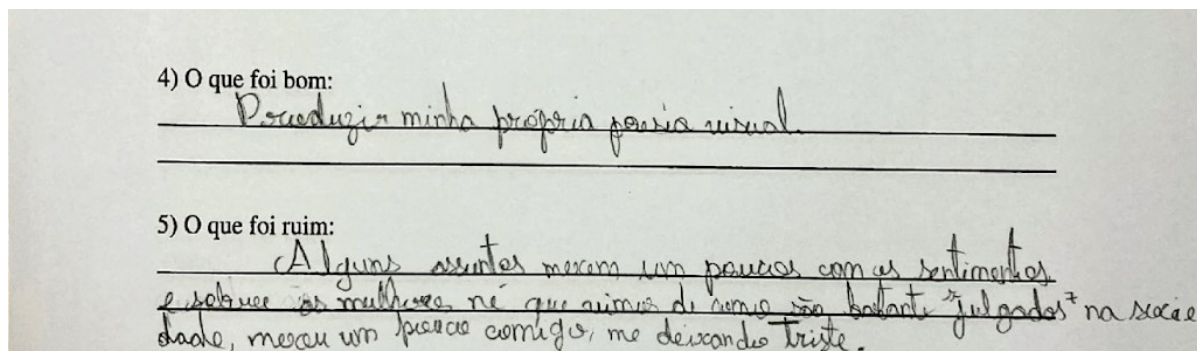 4) O que foi bom:
Produzir minha própria poesia visual.
5) O que foi ruim:
Alguns assuntos mexem um poucos com os sentimentos
e sobre as mulheres né que vimos de como são bastante "julgados" na socie
dade, mexeu um pouco comigo, me deixando triste.